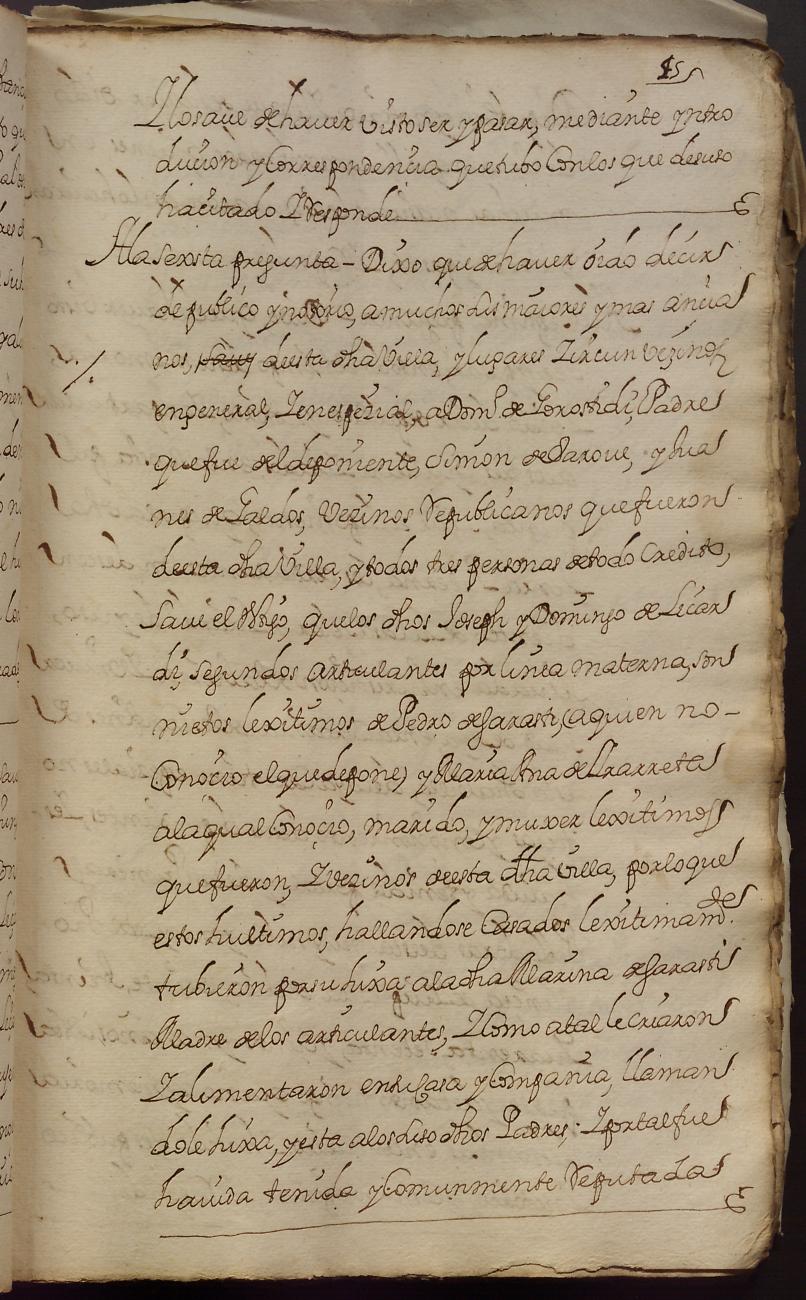 15
Ylo save de haver visto ser y pasar, mediante yntro
ducion y Correspondencia que tubo Con los que desuso
ha citado Y Responde
A la sexsta pregunta - Dixo que de haver oido decir
de publico y notorio, a muchos sus maiores y mas ancia
nos, de esta dha Villa, y lugares Zircunvezinos
en general, Y en espezial, a Domº de Gorostidi, Padre
que fue del deponiente, Simon de Sarove, y Jua
nes de Galdos, Vezinos Republicanos que fueron
de esta dha Villa, y todos tres personas de todo Credito,
Save el testigo, que los dhos Joseph y Domingo de Lizar
di, segundos articulantes por linea materna, son
nietos lexitimos de Pedro de Sarasti, (a quien no -
Conocio el que depone) y Maria Ana de Yrarreta
a la qual Conocio, marido, y muxer lexitimos
que fueron, Y vezinos de esta dha Villa, por lo que
estos hultimos, hallandose Casados lexitimamde
tubieron por su hixa a la dha Marina de Sarasti
Madre de los articulantes, Y Como a tal le criaron
Y alimentaron en su Casa y Compania, llaman
dole hixa, y esta a los suso dhos Padres; Y por tal fue
havida tenida y Comunmente Reputada